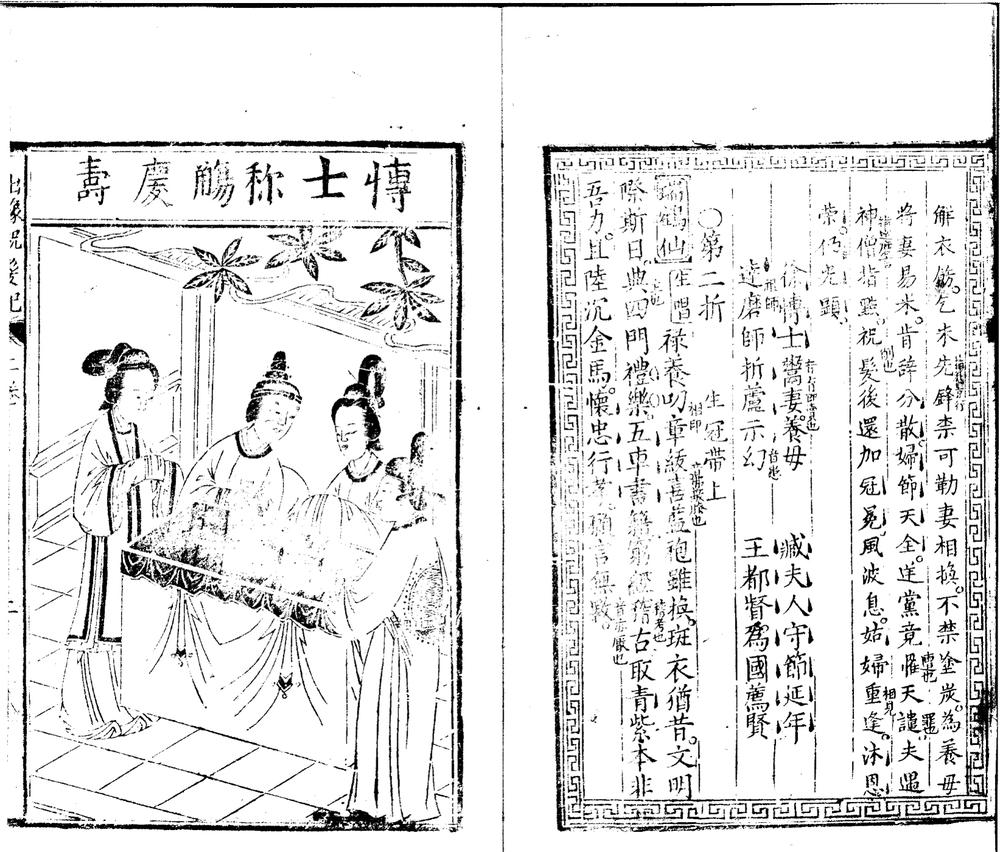 解衣飭乞米先鋒柰可勒妻相換不禁塗炭為養母
將妻易米肯辭分散婦節天全逆黨竟罹天譴夫遇
神僧指點祝髮後還加冠冕風波息姑婦重逢沐恩
榮仍光顯
徐博士鬻妻養母 臧夫人守節延年
達磨師折蘆示幻 王都督為國薦賢
○第二折 生冠帶上
瑞鶴仙 生唱 祿養叨章綬喜藍袍雖換班衣猶昔文明
際斯日典四門禮樂五車書籍窮經稽古取青紫本非
吾力且陸沉金馬懷忠行孝願言無斁
博士称觴慶壽
出象祝髮記